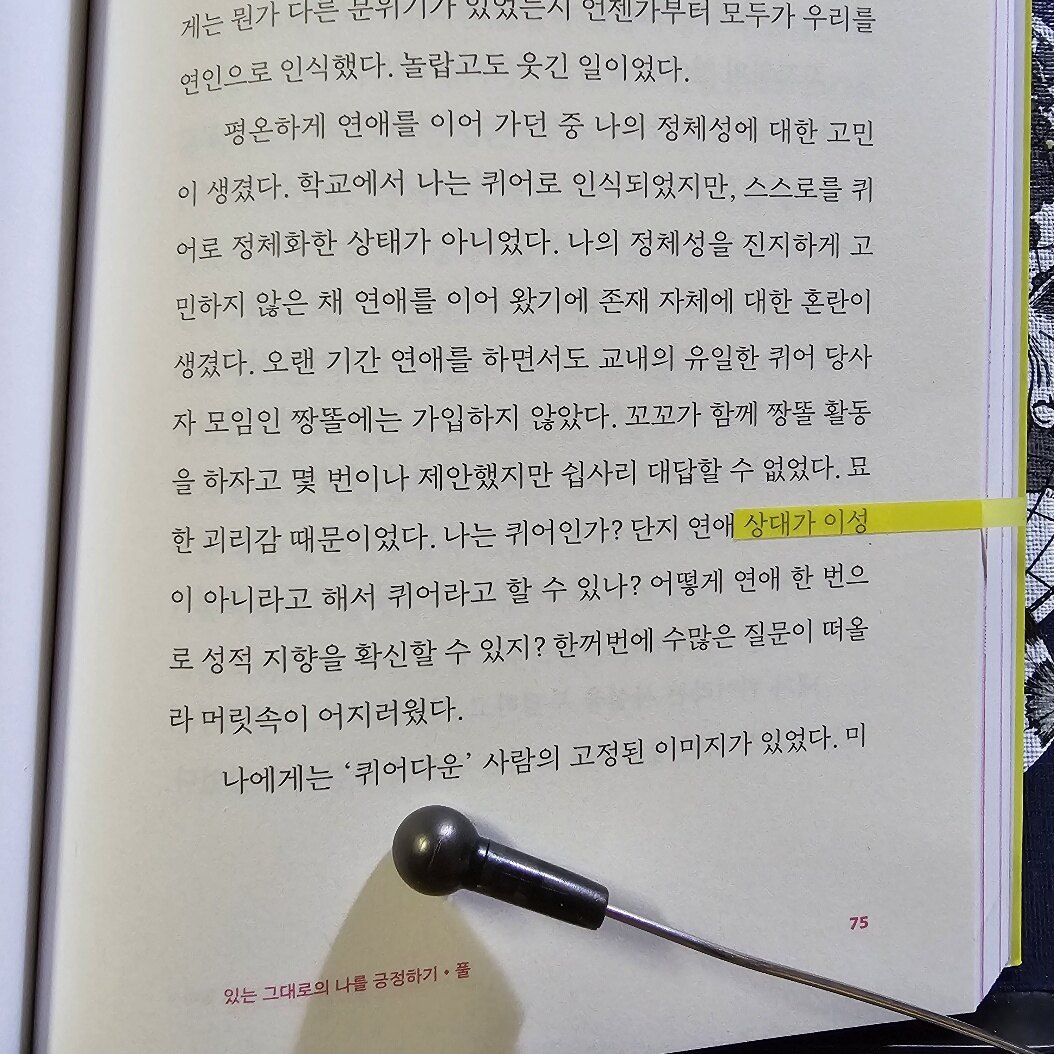 게는 뭔가 다른 분위기가 있었는지 언젠가부터 모두가 우리를
연인으로 인식했다. 놀랍고도 웃긴 일이었다.
평온하게 연애를 이어 가던 중 나의 정체성에 대한 고민
이 생겼다. 학교에서 나는 퀴어로 인식되었지만, 스스로를 퀴
어로 정체화한 상태가 아니었다. 나의 정체성을 진지하게 고
민하지 않은 채 연애를 이어 왔기에 존재 자체에 대한 혼란이
생겼다. 오랜 기간 연애를 하면서도 교내의 유일한 퀴어 당사
자 모임인 짱똘에는 가입하지 않았다. 꼬꼬가 함께 짱똘 활동
을 하자고 몇 번이나 제안했지만 쉽사리 대답할 수 없었다. 묘
한 괴리감 때문이었다. 나는 퀴어인가? 단지 연애 상대가 이성
이 아니라고 해서 퀴어라고 할 수 있나? 어떻게 연애 한 번으
로 성적 지향을 확신할 수 있지? 한꺼번에 수많은 질문이 떠올
라 머릿속이 어지러웠다.
나에게는 ‘퀴어다운’ 사람의 고정된 이미지가 있었다. 미
75
있는 그대로의 나를 긍정하기 • 풀